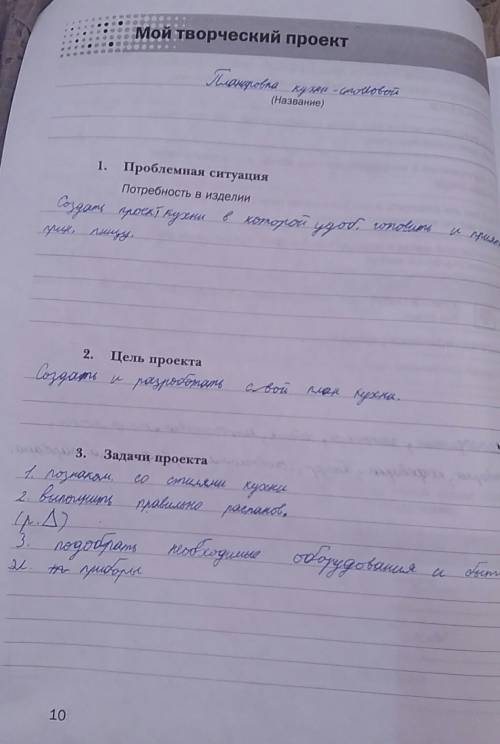 Мой творческий проект
Планировка кухни-столовой
(Название)
1. Проблемная ситуация
Потребность в изделии
Создать проект кухни в которой удоб. готовить и
прин. пищу.
2. Цель проекта
Создать и разработать свой план кухна.
3. Задачи проекта
1. познаком. со стилями кухни
2. выполнить правильно распаков.
(р. Δ)
3. подобрать необходимые оборудования и быт
эл. приборы
10